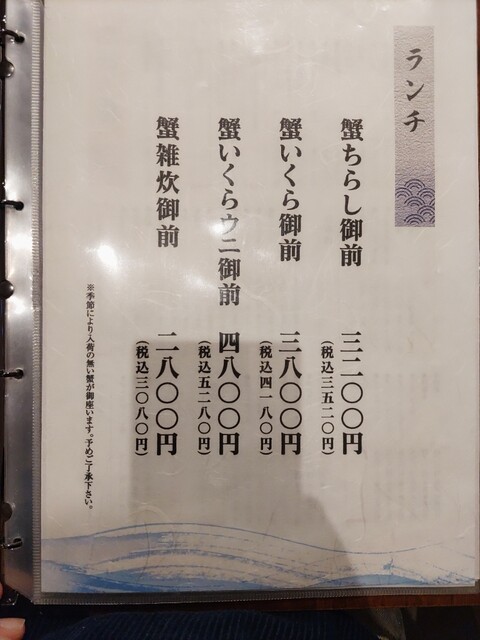 ランチ
蟹ちらし御前 三二〇〇円
(税込三五二〇円)
蟹いくら御前 三八〇〇円
(税込四一八〇円)
蟹いくらウニ御前 四八〇〇円
(税込五二八〇円)
蟹雑炊御前 二八〇〇円
(税込三〇八〇円)
※季節により入荷の無い蟹が御座います。予めご了承下さい。